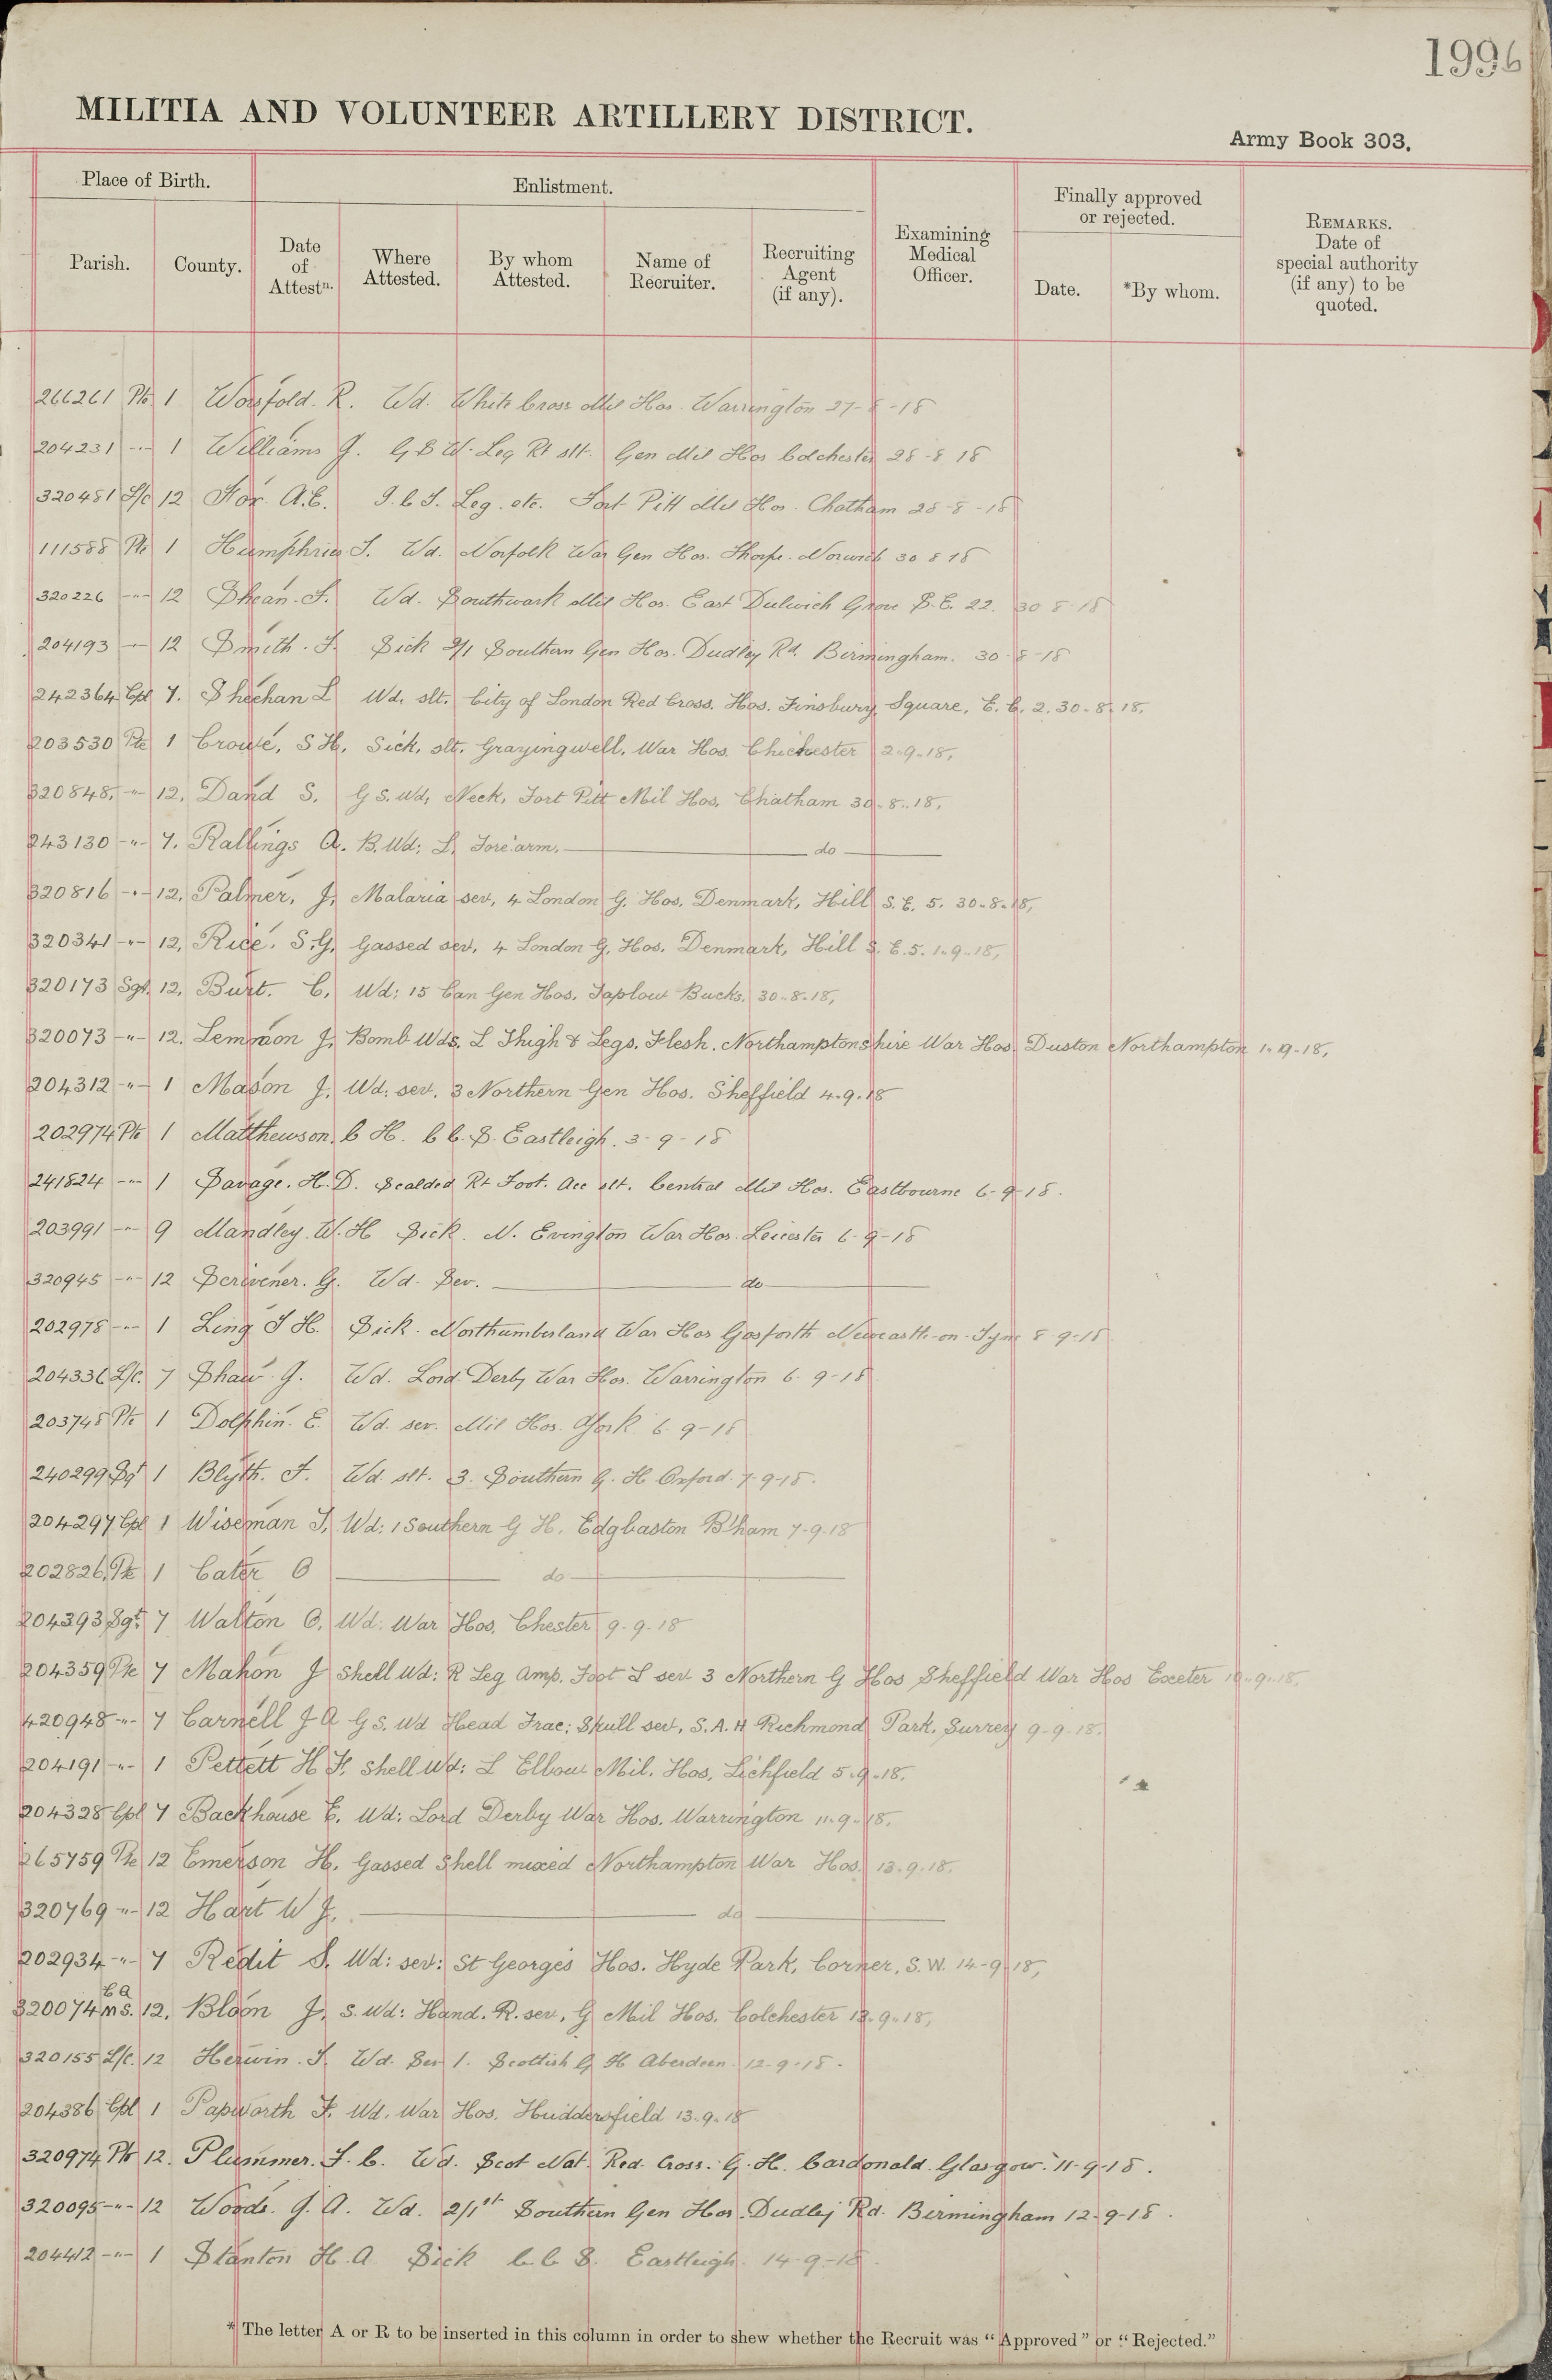 1996
MILITIA AND VOLUNTEER ARTILLERY DISTRICT.
Army Book 303.
Place of Birth.
Enlistment.
Finally approved or rejected.
Parish.
County.
Date of Attestn.
Where Attested.
By whom Attested.
Name of Recruiter.
Recruiting Agent (if any).
Examining Medical Officer.
Date.
*By whom.
REMARKS. Date of special authority (if any) to be quoted.
266261 Pte 1 Worsfold. R. Wd. White Cross Mil Hos. Warrington 27-8-18
204231 -"- 1 Williams J. G S W. Leg Rt slt. Gen Mil Hos Colchester 28-8 18
320481 L/c 12 Fox. A.E. I.C.T. Leg. etc. Fort Pitt Mil Hos. Chatham 28-8-18
111588 Pte 1 Humphries T. Wd. Norfolk War Gen Hos. Thorpe. Norwich 30 8 18
320226 -"- 12 Shean. F. Wd. Southwark Mil Hos. East Dulwich Grove S.E. 22. 30 8-18
204193 -"- 12 Smith. T. Sick 2/1 Southern Gen Hos. Dudley Rd. Birmingham. 30-8-18
242364 Cpl 7. Sheehan L Wd, slt. City of London Red Cross. Hos. Finsbury, Square, E.C. 2. 30-8-18,
203530 Pte 1 Crowe, S H, Sick, slt, Grayingwell, War Hos. Chichester 2-9-18,
320848, -"- 12, Dand S. G S. Wd, Neck, Fort Pitt Mil Hos, Chatham 30-8-18,
243130 -"- 7. Rallings A. B. Wd; L, Fore'arm. do
320816 -"- 12, Palmer, J, Malaria sev, 4 London G. Hos, Denmark, Hill S.E. 5. 30-8-18,
320341 -"- 12, Rice, S.G, Gassed sev, 4 London G, Hos, Denmark, Hill S.E.5. 1-9-18,
320173 Sgt. 12, Burt. C, Wd; 15 Can Gen Hos. Taplow Bucks, 30-8-18,
320073 -"- 12. Lemmon J, Bomb Wds, L Thigh & Legs, Flesh. Northamptonshire War Hos. Duston Northampton 1-9-18,
204312 -"- 1 Mason J, Wd: sev, 3 Northern Gen Hos. Sheffield 4-9-18
202974 Pte 1 Matthewson, C H. C C. S. Eastleigh. 3-9-18
241824 -"- 1 Savage. H.D. Scalded Rt Foot. Acc slt. Central Mil Hos. Eastbourne 6-9-18.
203991 -"- 9 Mandley. W.H Sick. N. Evington War Hos. Leicester 6-9-18
320945 -"- 12 Scrivener. G. Wd. Sev. do
202978 -"- 1 Ling T H. Sick. Northumberland War Hos Gosforth Newcastle-on-Tyne 8-9-18
204336 L/c. 7 Shaw. G. Wd. Lord Derby War Hos. Warrington 6-9-18
203748 Pte 1 Dolphin. E. Wd. sev. Mil Hos. York 6 9-18
240299 Sgt 1 Blyth. F. Wd slt. 3. Southern G. H Oxford. 7-9-18.
204297 Cpl 1 Wiseman T, Wd: 1 Southern G H, Edgbaston B'ham 7-9-18
202826, Pte 1 Cater O do
204393 Sgt. 7 Walton O, Wd: War Hos, Chester 9-9-18
204359 Pte 7 Mahon J Shell Wd: R Leg Amp. Foot L sev 3 Northern G Hos Sheffield War Hos Exeter 10-9-18,
420948 -"- 7 Carnell J A G S. Wd Head Frac; Skull sev, S.A.H Richmond Park, Surrey 9-9-18.
204191 -"- 1 Pettett H F, Shell Wd: L Elbow Mil. Hos, Lichfield 5-9-18.
204328 Cpl 7 Backhouse E, Wd: Lord Derby War Hos. Warrington 11-9-18,
265759 Pte 12 Emerson H, Gassed Shell mixed Northampton War Hos. 13-9-18.
320769 -"- 12 Hart W J, do
202934 -"- 7 Redit S, Wd: sev: St George's Hos. Hyde Park, Corner, S.W. 14-9-18,
C Q
320074 M S. 12, Bloom J, S. Wd: Hand. R. sev, G Mil Hos. Colchester 13-9-18,
320155 L/c. 12 Herwin. T. Wd. Sev 1. Scottish G H Aberdeen. 12-9-18.
204386 Cpl 1 Papworth F, Wd, War Hos. Huddersfield 13-9-18
320974 Pte 12. Plummer. T. C. Wd. Scot Nat. Red. Cross. G. H. Cardonald. Glasgow. 11-9-18.
320095 -"- 12 Woods. J. A. Wd. 2/1st Southern Gen Hos. Dudley Rd. Birmingham 12-9-18.
204412 -"- 1 Stanton H. A Sick C C S. Eastleigh. 14-9-18.
* The letter A or R to be inserted in this column in order to shew whether the Recruit was "Approved" or "Rejected."